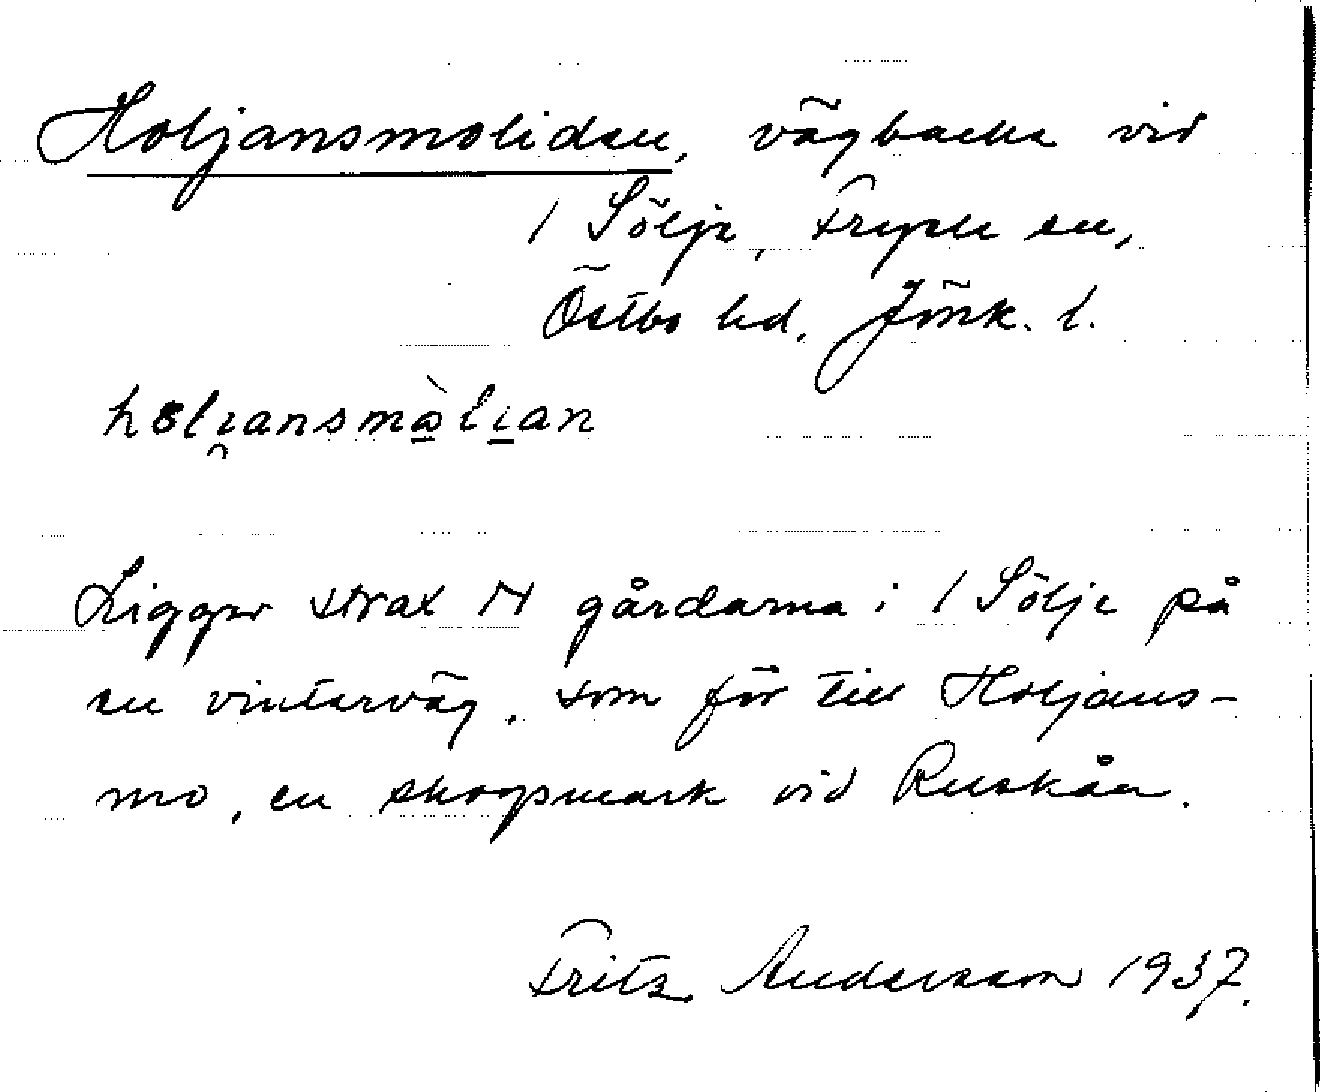 Holjansmoliden, vägbacke vid
1 Sölje, Fryele sn,
Östbo hd. Jönk. l.
hɵljansmòlian
Ligger strax N gårdarna i 1 Sölje på
en vinterväg, som för till Holjans-
mo, en skogsmark vid Ruskån.
Fritz Andersson 1937.